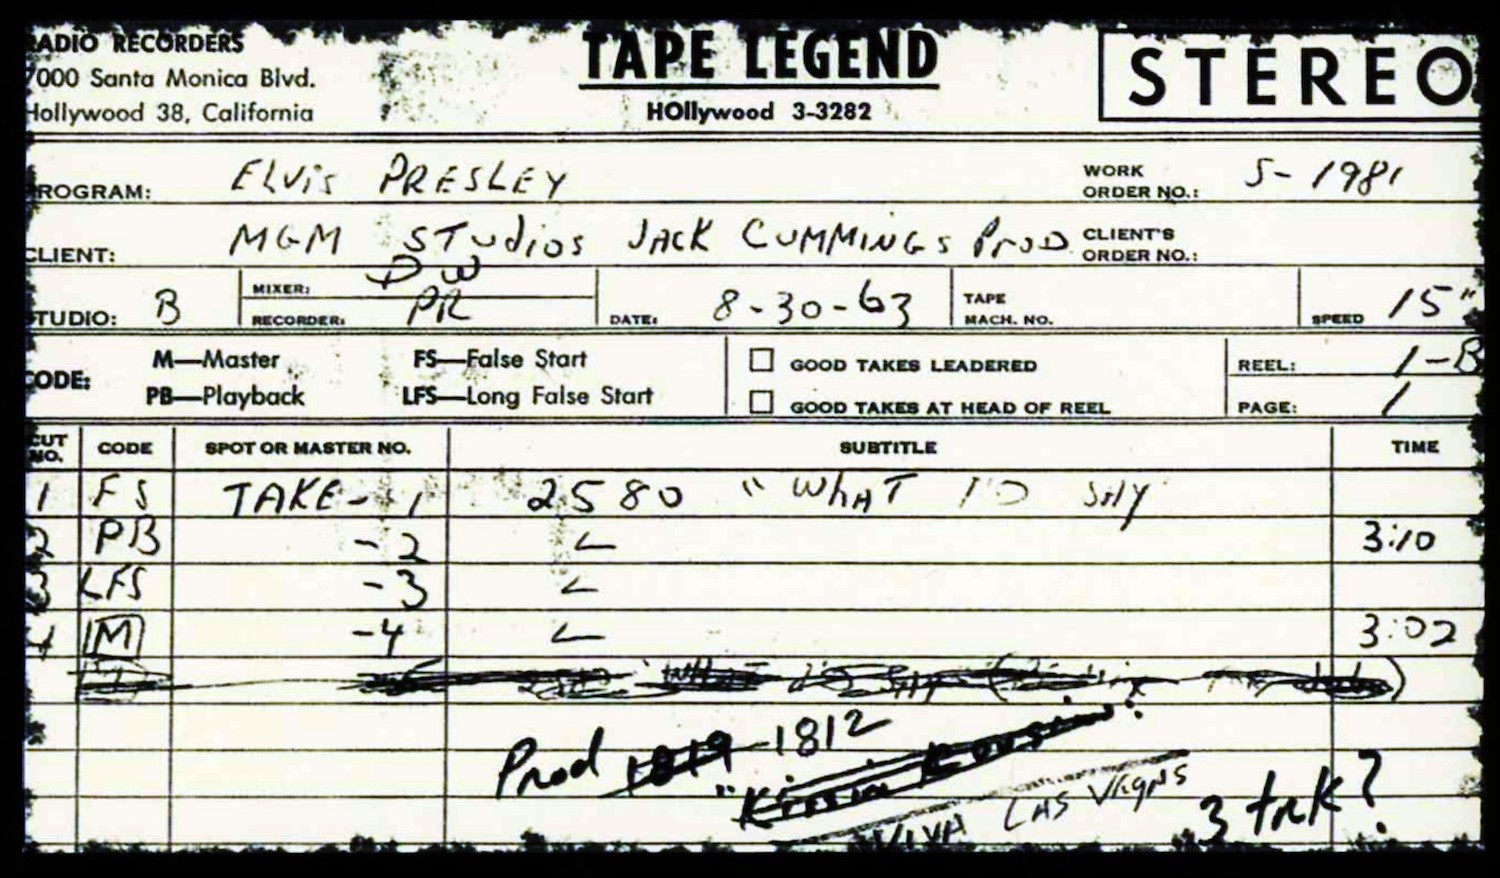 RADIO RECORDERS
7000 Santa Monica Blvd.
Hollywood 38, California
TAPE LEGEND
HOllywood 3-3282
STEREO
PROGRAM: ELVIS PRESLEY WORK ORDER NO.: 5-1981
CLIENT: MGM STUDIOS JACK CUMMINGS PROD CLIENT'S ORDER NO.:
STUDIO: B MIXER: DW RECORDER: PR DATE: 8-30-63 TAPE MACH. NO. SPEED 15"
CODE: M—Master FS—False Start GOOD TAKES LEADERED REEL: 1-B
PB—Playback LFS—Long False Start GOOD TAKES AT HEAD OF REEL PAGE: 1
CUT NO. CODE SPOT OR MASTER NO. SUBTITLE TIME
1 FS TAKE-1 2580 "WHAT I'D SAY
2 PB -2 3:10
3 LFS -3
4 M -4 3:02
WHAT I'D SAY
Prod 1819 1812
"Kissin Kousins"
VIVA LAS VEGAS
3 trk?